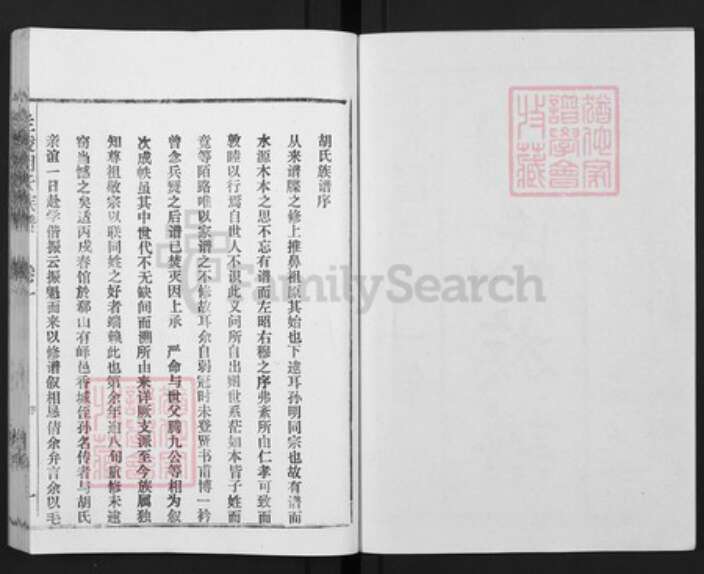 胡氏族谱序
从来谱牒之修上推鼻祖原其始也下逮耳孙明同宗也故有谱而
水源木本之思不忘有谱而左昭右穆之序弗紊所由仁孝可致而
敦睦以行焉自世人不识此义问所自出姻世系茫如本皆子姓而
竟等陌路唯以家谱之不修故耳余自弱冠时未登贤书甫博一衿
曾念兵燹之后谱已焚灭因上承 严命与世父腾九公等相为叙
次成帙虽其中世代不无缺间而溯所由来详厥支派至今族属犹
知尊祖敬宗以联同姓之好者端赖此也第余年逾八旬重修未遑
窃当憾之矣适丙戌春馆於邹山有峄邑香城侄孙名传者与胡氏
亲谊一日赴学偕振云振魁而来以修谱叙相恳倩余弁言余以毛
卷一
一
FamilySearch
犹他家谱学会收藏